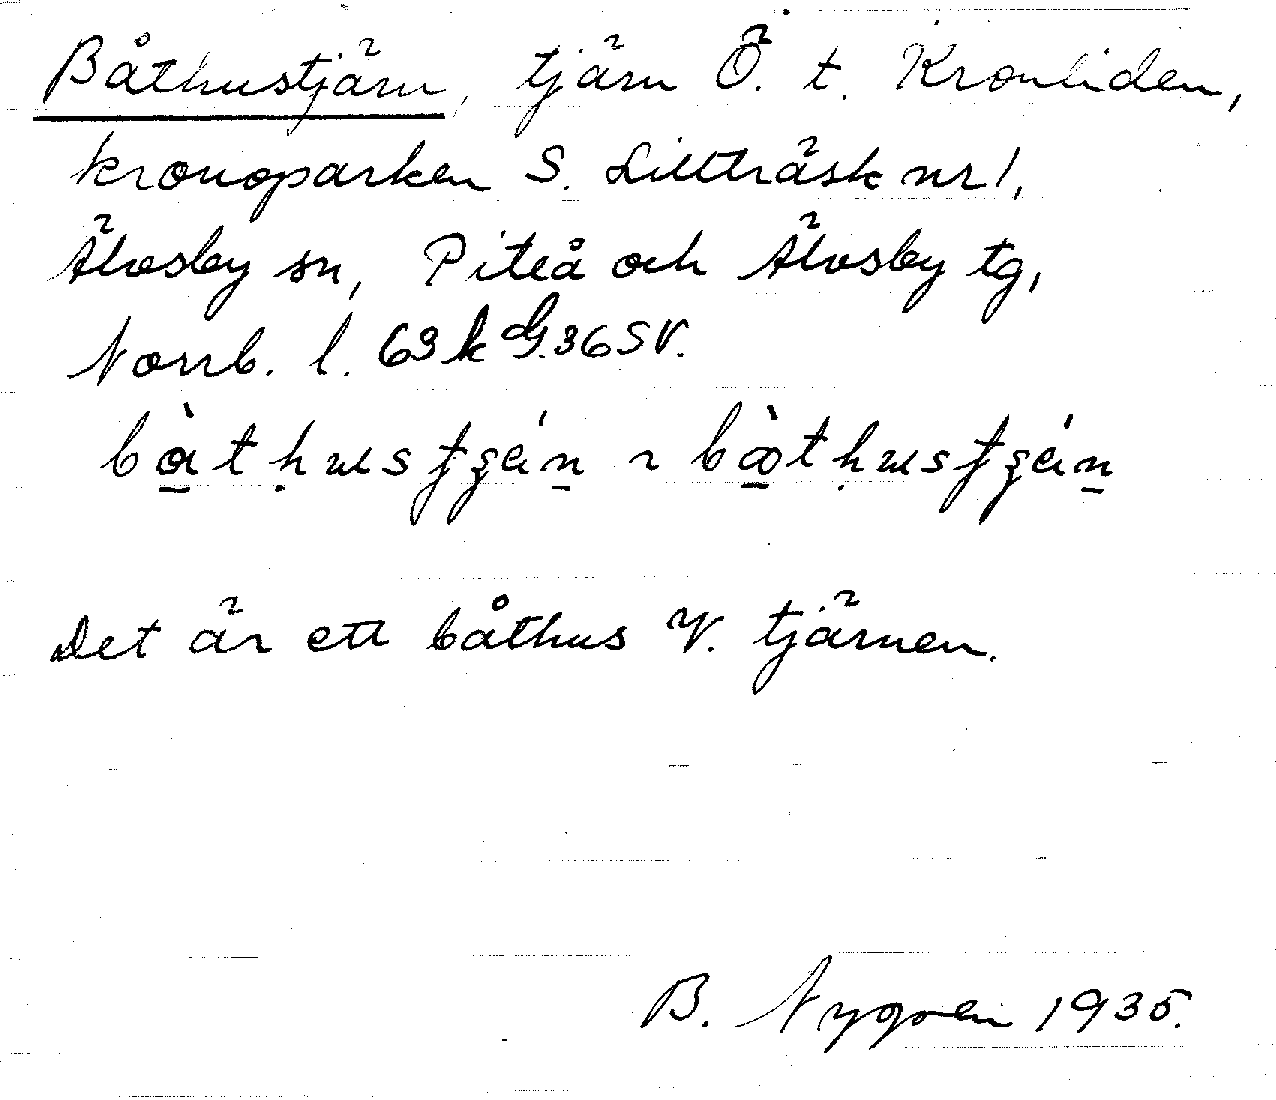 Båthustjärn, tjärn Ö. t. Kronliden,
kronoparken S. Lillträsk nr 1,
Älvsby sn, Piteå och Älvsby tg,
Norrb. l. 63 k
Det är ett båthus V. tjärnen.
B. Nygren 1935.